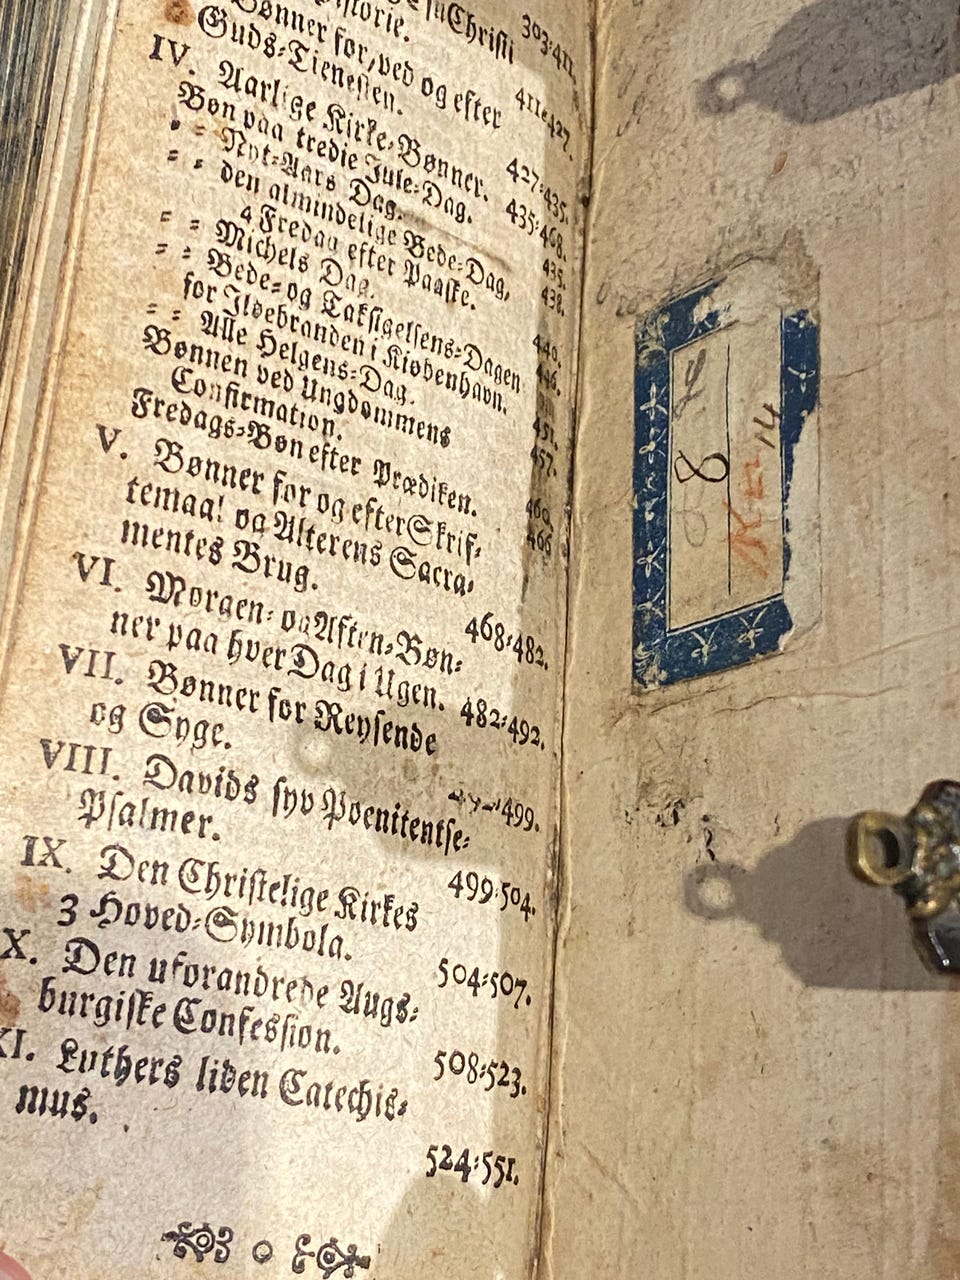 JesuChristi
historie. 303:411.
Bønner for, ved og efter
Guds-Tienesten. 411:427.
IV. Aarlige Kirke-Bønner. 427:435.
Bøn paa tredie Jule-Dag. 435:468.
- - Nyt-Aars Dag. 435.
- - den almindelige Bede-Dag, 438.
4 Fredag efter Paaske. 440.
- - Michels Dag. 446.
- - Bede- og Taksigelsens-Dagen
for Ildebranden i Kiøbenhavn. 451.
- - Alle Helgens-Dag. 457.
Bønnen ved Ungdommens
Confirmation. 460.
Fredags-Bøn efter Prædiken. 466
V. Bønner for og efter Skrif-
temaal og Alterens Sacra-
mentes Brug. 468:482.
VI. Morgen- og Aften-Bøn-
ner paa hver Dag i Ugen. 482:492.
VII. Bønner for Reysende
og Syge. 499.
VIII. Davids syv Poenitentse-
Psalmer. 499:504.
IX. Den Christelige Kirkes
3 Hoved-Symbola. 504:507.
X. Den uforandrede Augs-
burgiske Confession. 508:523.
XI. Luthers liden Catechis-
mus. 524:551.
8